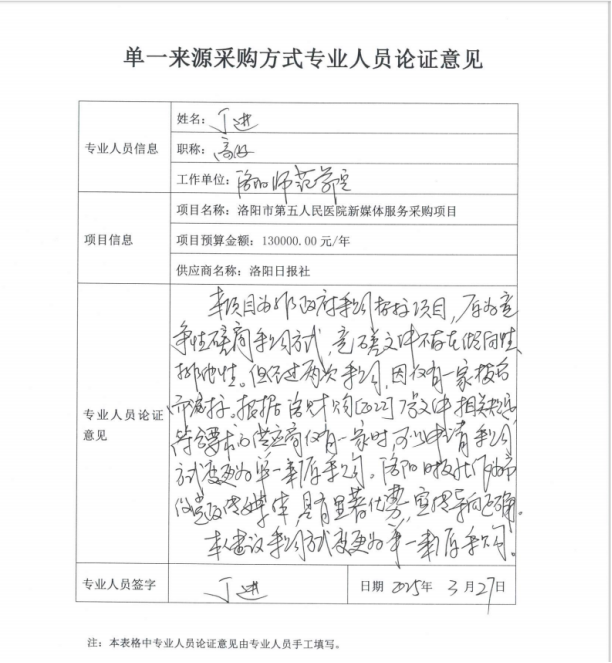 单一来源采购方式专业人员论证意见
专业人员信息
姓名：丁进
职称：高工
工作单位：洛阳师范学院
项目信息
项目名称：洛阳市第五人民医院新媒体服务采购项目
项目预算金额：130000.00 元/年
供应商名称：洛阳日报社
专业人员论证意见
本项目为非政府采购招标项目，原为竞
争性磋商采购方式，竞磋文件不存在倾向性
排他性。但经过两次采购，因仅有一家报名
而流标。根据洛财购[2022]7号文中相关规定
符合要求的供应商仅有一家时，可以申请采购
方式变更为单一来源采购。洛阳日报社作为
党政传媒体，具有显著优势，宣传导向正确。
本人建议采购方式变更为单一来源采购。
专业人员签字
丁进
日期 2025年 3月27日
注：本表格中专业人员论证意见由专业人员手工填写。